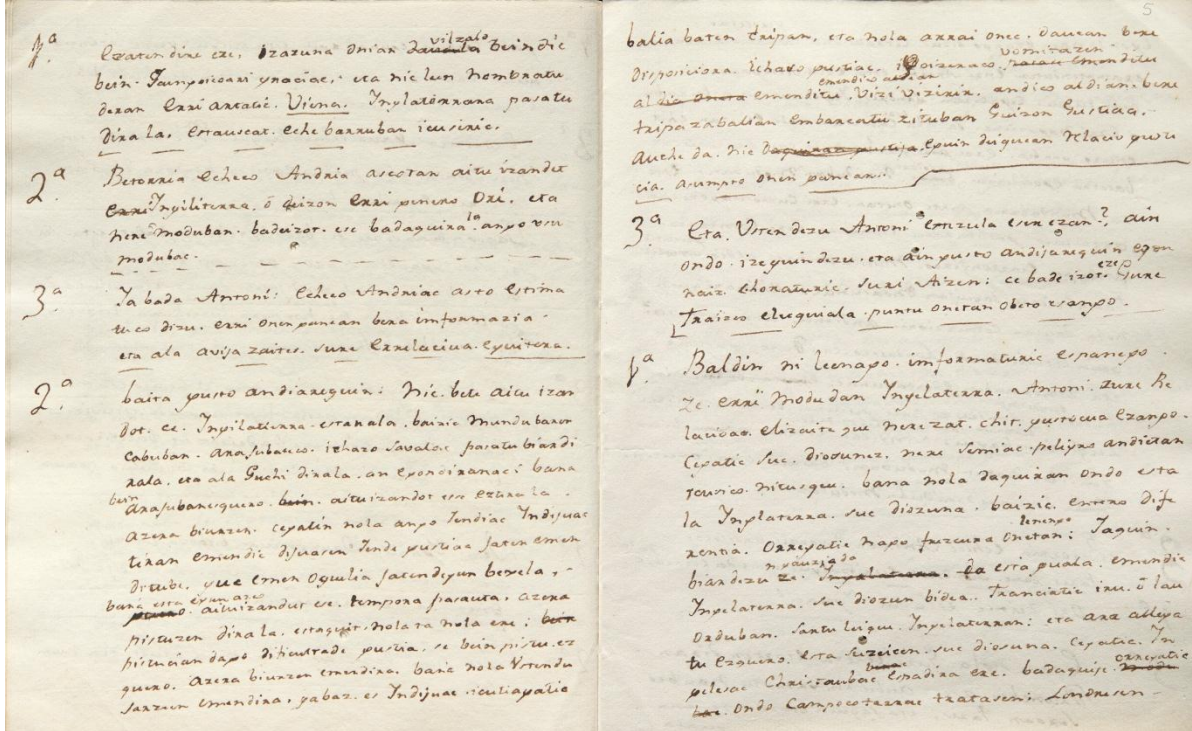 1ª
esaten dire ere, izaruna dnian
vilzalo
beindic
bein.
eta nic len nombratu
deran Erri artatic. Viena. Inglaterrara pasatu
dirala, estauscat. eche barruban icusiric.
2ª
Betorria Echeco Andria ascotan aitu izandet
Erri Ingiliterra, ó guizon Erri perero Ori, eta
nere moduban. badeizot. ese badaquira la ango usu
modubac.
3ª
Ia bada Antoni: Echeco Andriac asto Estima
tuco dizu. erri onen puncan bera imformazia
eta ala avisa zaites. sure Errelaciua. eguitera.
2ª
baita gusto andiarequin: Nic. bete aitu izan
dot. ce. Ingilaterra. estanala. bainic Mundu baten
cabuban. Arasubateco. ichazo savaloc pasatu biandi
rala, eta ala Guchi dirala. an egondiranac; bana
bein
Arasubanesquero. bein. aitu izandot ese
azera biurzen. cepatin nola ango Jendiac Indijuac
diran emendic dijuasen Jende gustiac jaten emen
ditube, gue emen Oguiia jatendegun bezela,
bana esta
aituizandut ese. tempora pasauta, azera
pisturen dirala. estaquit. nola ta nola ere; bein
pistucian dago dificultade gustia, se bein pistu. ez
quero. Azera biurzen emendira. banic nola Ustendu
sarzen emendira, gabaz. es Indijuac
5
balia baten tripan, eta nola arrai onec. daucan bere
disposiciora. ichaso gustiac,
vomitazen
emenditu
emendico aldian
aldia onera emenditu. Vizi Vizirik. andico aldian. bere
tripa zabalian embarcatu zituban Guizon Gustiac.
Auche da. nic daquiran gustija. eguin diguean Relaciv
cia. asumpto onen puncan.
3ª
Eta. Usten dezu Antoni Estezula esan ezan? ain
ondo. izeguin dezu. eta ain gusto andijarequin egon
naiz. chonaturic. suri Aizen: ce badeizot. eze sure
Traizeo eleguiala. puntu onetan obeto esango.
1ª
Baldin ni leenago. imformaturic espanego.
ze. erri modu dan Ingelaterra. Antoni. zure Re
laciuac. Elizaite gue nerezat. chit. gustocua Ezango.
Cegatic sue. diosunez. nere semiac. peligro andietan
icusico nitusque. bana nola daquiran ondo esta
la Inglaterra. sue diozuna. baizic. entero dife
rentia. Orregatic nago frescura onetan;
lenengo
Jaquin.
biandezu ze. Ingelaterra. Ez esta
emendic
Ingelaterra. sue diozun bidea. Franciatic iru. ó lau
Orduban. santu leique Ingelaterran; eta ara allega
tu Ezquero. Esta suzeicen. sue diosuna. cegatic. In
gelesac Christaubac Espadira ere. badaquije
orregatic
modu
bac. ondo Campocoterrac tratasen: Londresen